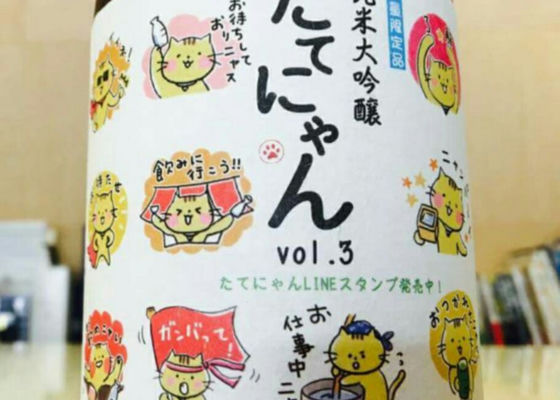 量限定品
純米大吟醸
たてにゃん
vol.3
たてにゃんLINEスタンプ発売中！
お待ちして
おりニャス
飲みに
行こう!!
お待たせ
ガンバって！
お
仕事中
おつかれ